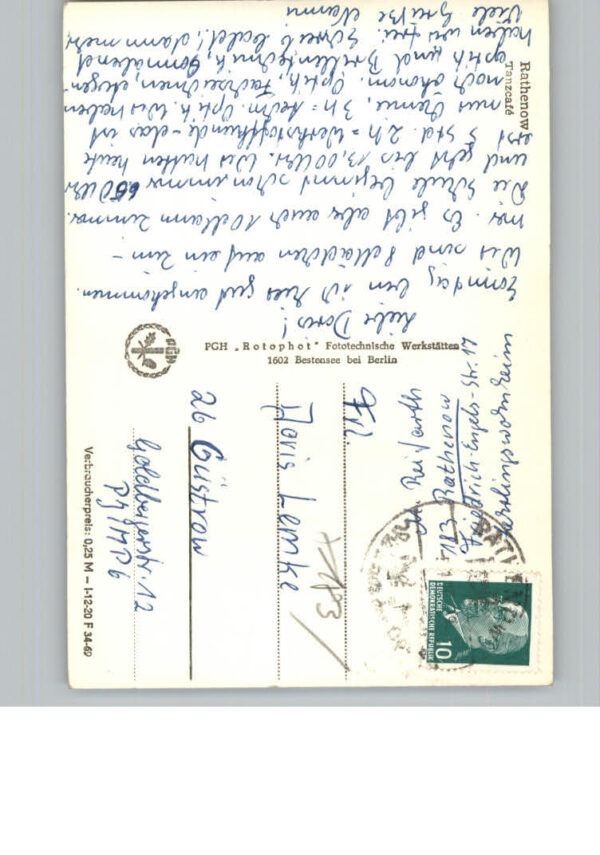 Rathenow
Tanzcafé
Liebe Doris!
Sonntag bin ich hier gut angekommen.
Wir sind 8 Mädchen auf ein Zim-
mer. Es gibt aber auch 10 Mann Zimmer.
Die Schule beginnt schon immer 6.50 Uhr
und geht bis 13,00 Uhr. Wir hatten heute
erst 5 Std. 2 h = Werkstoffkunde - das ist
nur Chemie, 3 h = techn. Optik. Wir haben
noch ökonom. Optik, Fachzeichnen, Augen-
optik und Brillentechnik. Sonnabend
haben wir frei. Schreib bald! dann mehr
Viele Grüße Nanni
PGH „Rotophot" Fototechnische Werkstätten
1602 Bestensee bei Berlin
PGH
183 Rathenow
Friedrich-Engels-Str. 17
Lehrlingswohnheim
Frl.
Doris Lemke
26 Güstrow
Goldbergerstr. 12
PSF/1106
183
RATHENOW
DEUTSCHE
DEMOKRATISCHE REPUBLIK
10
Verbraucherpreis: 0,25 M – I-12-20 F 34-69